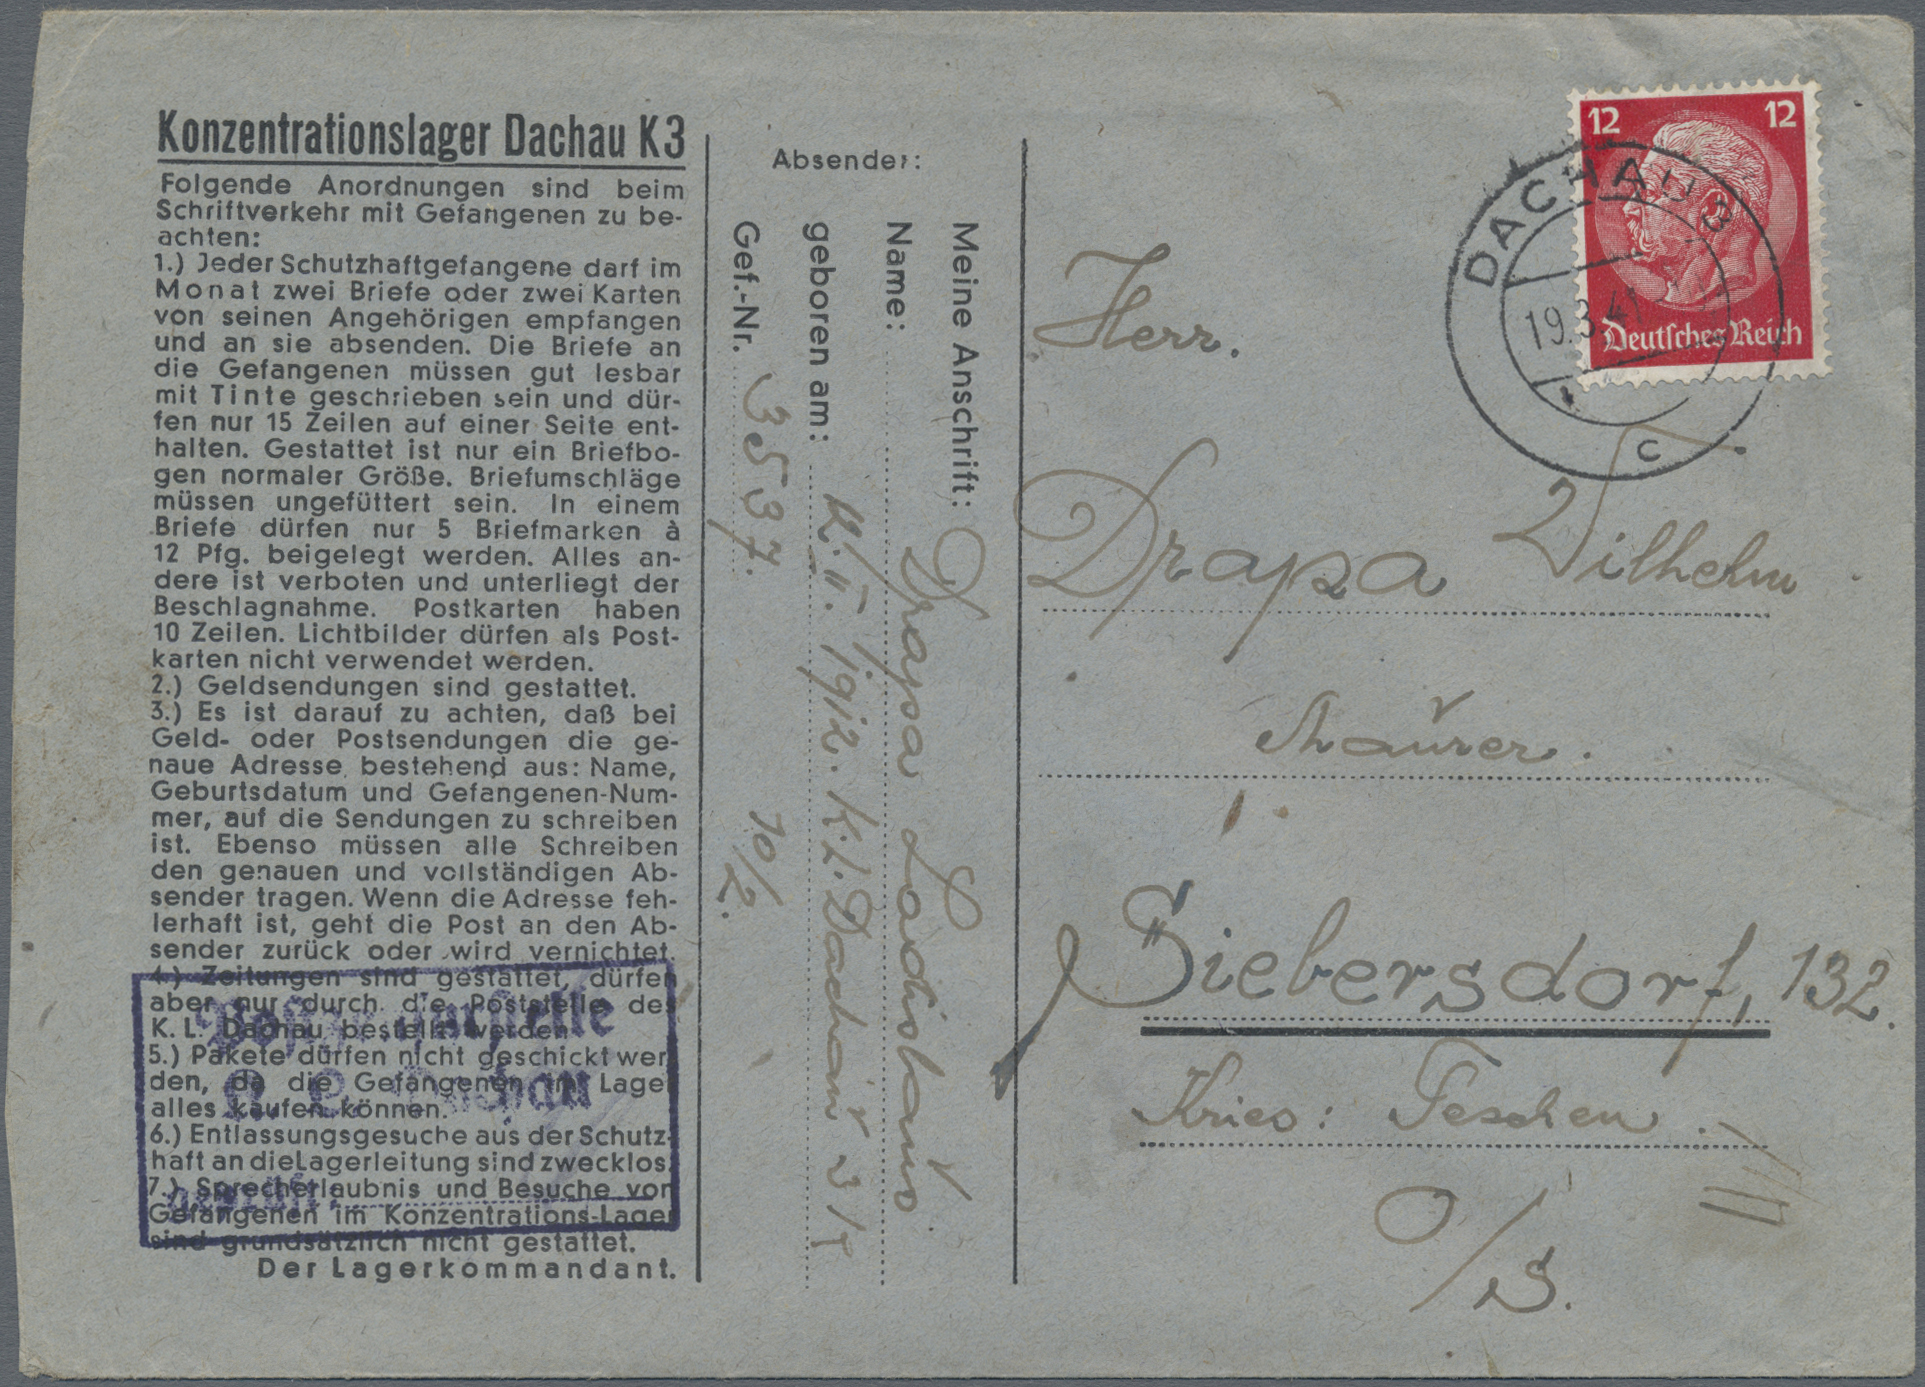 Konzentrationslager Dachau K3
Folgende Anordnungen sind beim
Schriftverkehr mit Gefangenen zu be-
achten:
1.) Jeder Schutzhaftgefangene darf im
Monat zwei Briefe oder zwei Karten
von seinen Angehörigen empfangen
und an sie absenden. Die Briefe an
die Gefangenen müssen gut lesbar
mit Tinte geschrieben sein und dür-
fen nur 15 Zeilen auf einer Seite ent-
halten. Gestattet ist nur ein Briefbo-
gen normaler Größe. Briefumschläge
müssen ungefüttert sein. In einem
Briefe dürfen nur 5 Briefmarken à
12 Pfg. beigelegt werden. Alles an-
dere ist verboten und unterliegt der
Beschlagnahme. Postkarten haben
10 Zeilen. Lichtbilder dürfen als Post-
karten nicht verwendet werden.
2.) Geldsendungen sind gestattet.
3.) Es ist darauf zu achten, daß bei
Geld- oder Postsendungen die ge-
naue Adresse, bestehend aus: Name,
Geburtsdatum und Gefangenen-Num-
mer, auf die Sendungen zu schreiben
ist. Ebenso müssen alle Schreiben
den genauen und vollständigen Ab-
sender tragen. Wenn die Adresse feh-
lerhaft ist, geht die Post an den Ab-
sender zurück oder wird vernichtet.
4.) Zeitungen sind gestattet, dürfen
aber nur durch die Poststelle des
K. L. Dachau bestellt werden.
5.) Pakete dürfen nicht geschickt wer
den, da die Gefangenen im Lager
alles kaufen können.
6.) Entlassungsgesuche aus der Schutz-
haft an die Lagerleitung sind zwecklos.
7.) Sprecherlaubnis und Besuche von
Gefangenen im Konzentrations-Lager
sind grundsätzlich nicht gestattet.
Der Lagerkommandant.
K. L. Dachau
Absender:
Meine Anschrift:
Name: Drapa Ladislaus
geboren am: 1912. K.L. Dachau 3 K
Gef.-Nr. 3537. 10/2.
12 12
Deutsches Reich
DACHAU 3
19.3.41
c
Herr.
Drapa Wilhelm
Maurer.
Siebersdorf, 132.
Kries: Teschen.
O/S.